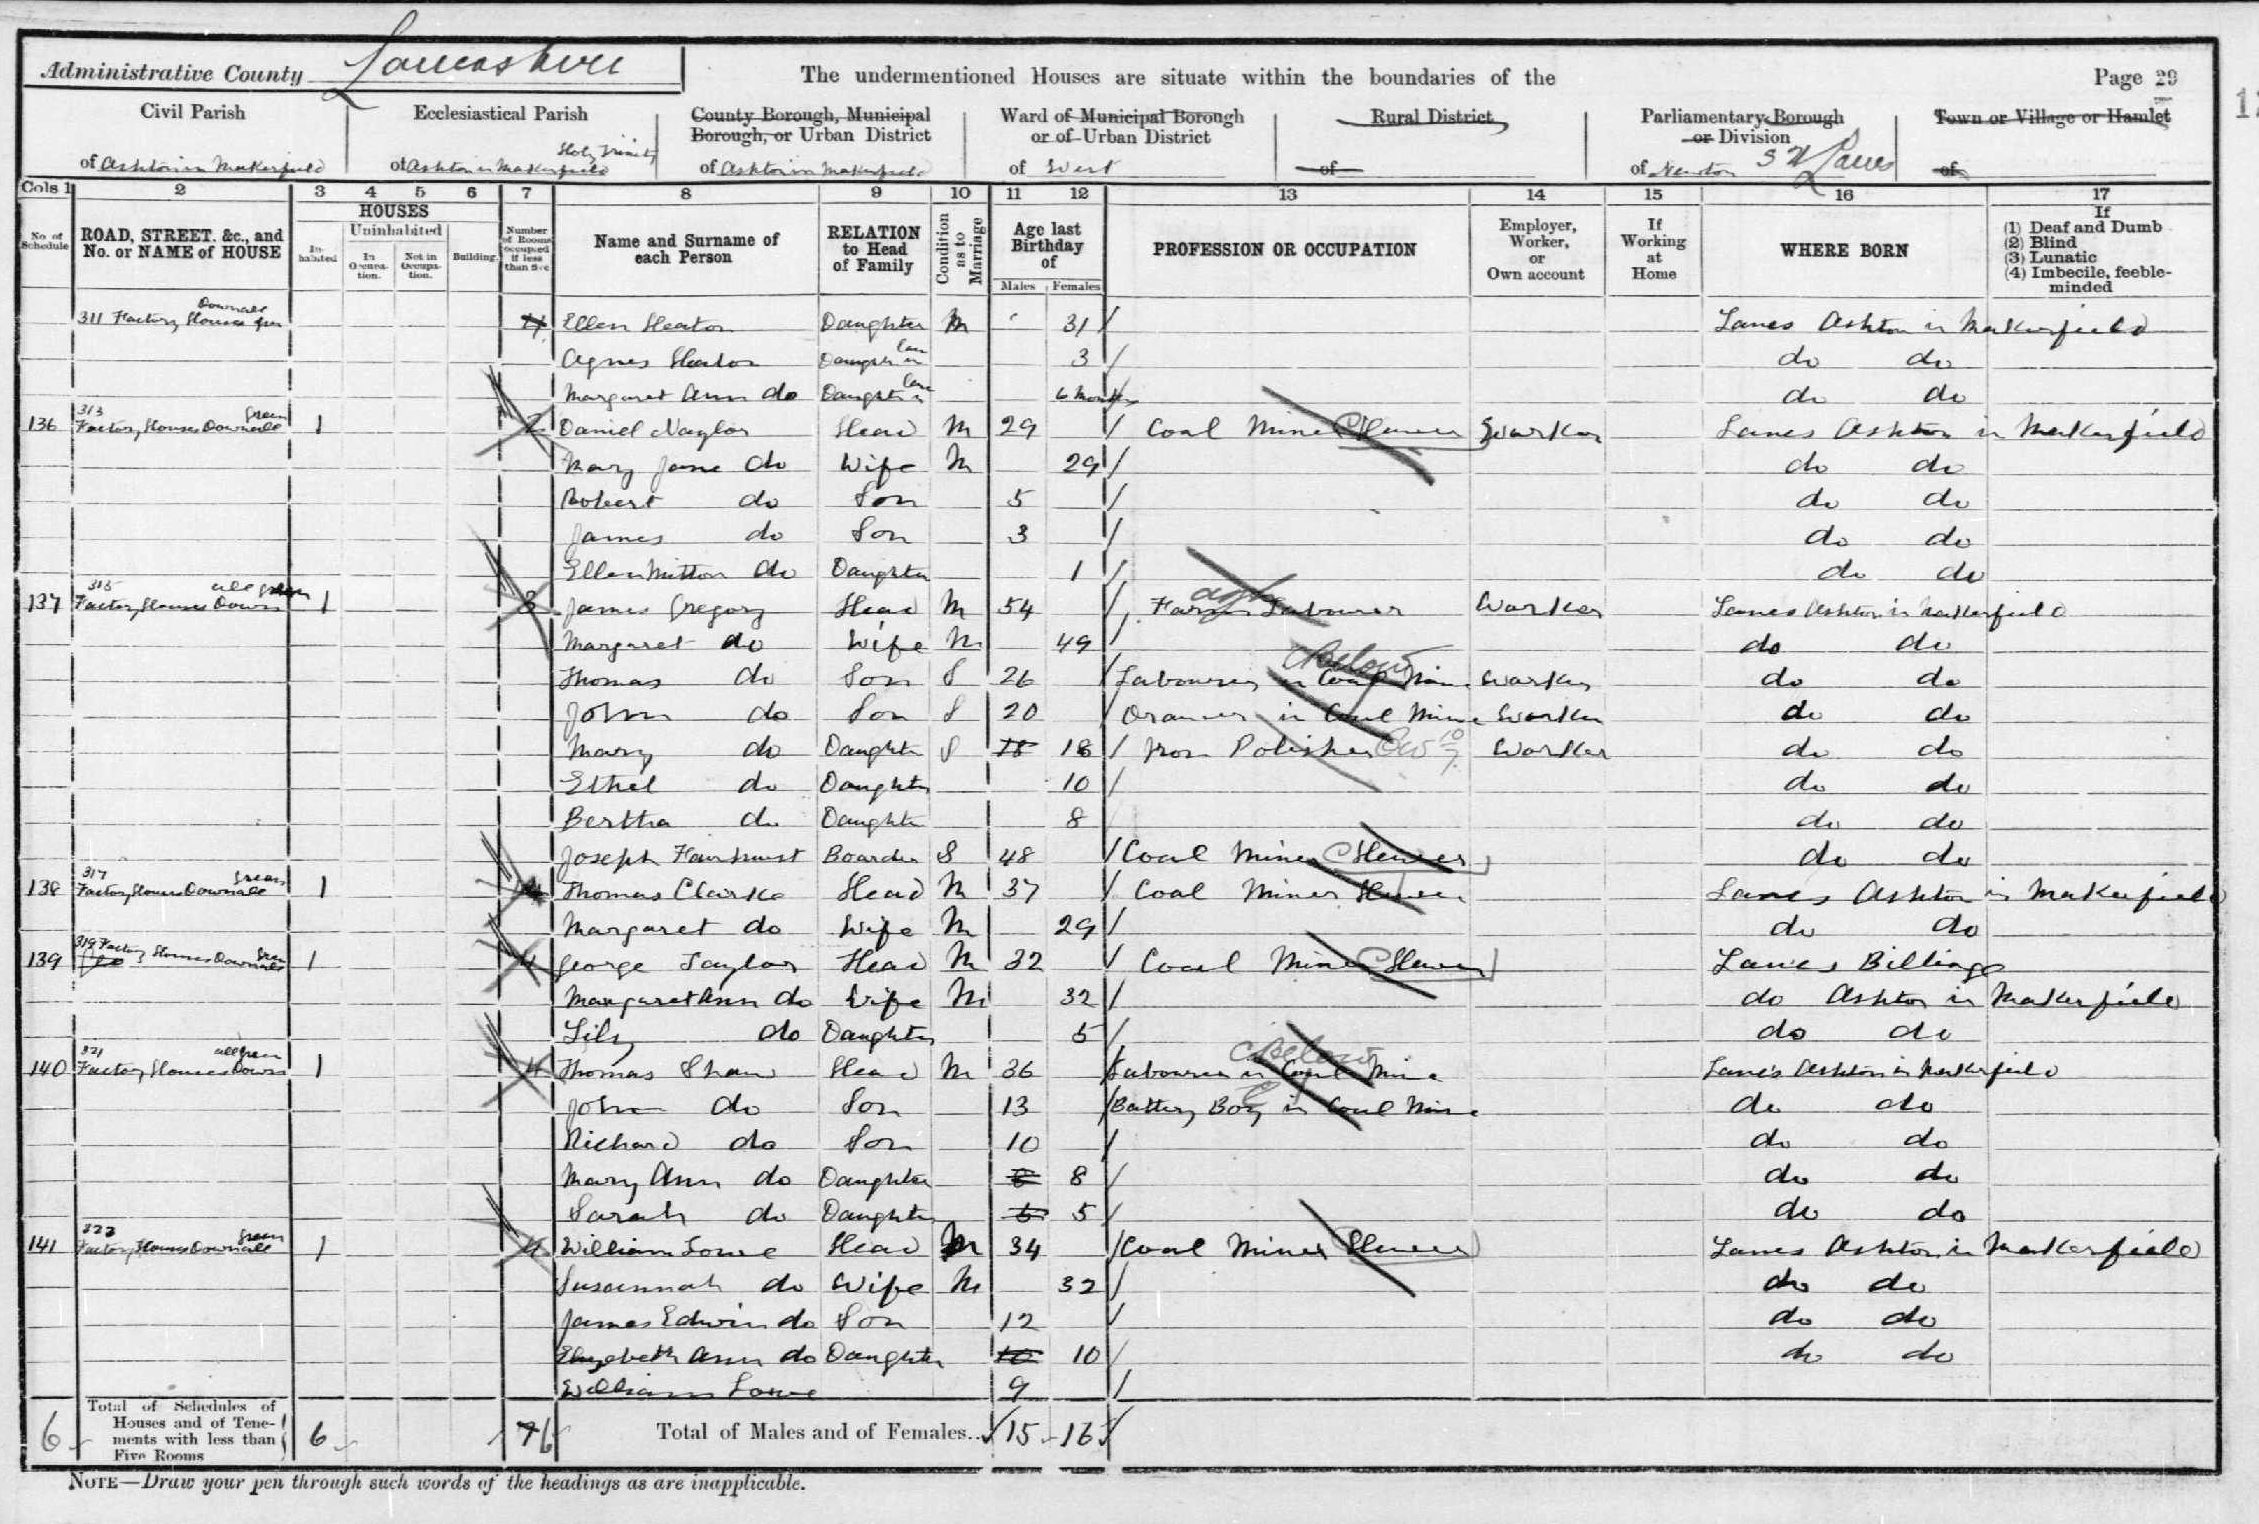 Administrative County Lancashire
The undermentioned Houses are situate within the boundaries of the
Page 29
Civil Parish of Ashton in Makerfield
Ecclesiastical Parish of Ashton in Makerfield Holy Trinity
County Borough, Municipal Borough, or Urban District of Ashton in Makerfield
Ward of Municipal Borough or of Urban District of West
Rural District of
Parliamentary Borough or Division of Newton S W Lancs
Town or Village or Hamlet of
Cols 1 2 3 4 5 6 7 8 9 10 11 12 13 14 15 16 17
No. of Schedule
ROAD, STREET, &c., and No. or NAME of HOUSE
HOUSES
Inhabited
Uninhabited
In Occupation.
Not in Occupation.
Building.
Number of Rooms occupied if less than five
Name and Surname of each Person
RELATION to Head of Family
Condition as to Marriage
Age last Birthday of
Males Females
PROFESSION OR OCCUPATION
Employer, Worker, or Own account
If Working at Home
WHERE BORN
If
(1) Deaf and Dumb
(2) Blind
(3) Lunatic
(4) Imbecile, feeble-minded
311 Factory Houses Downall Grn 4 Ellen Heaton Daughter M 31 Lancs Ashton in Makerfield
Agnes Heaton Daughter in Law 3 do do
Margaret Ann do Daughter in Law 6 Months do do
136 313 Factory Houses Downall Green 1 2 Daniel Naylor Head M 29 Coal Miner Hewer Worker Lancs Ashton in Makerfield
Mary Jane do Wife M 29 do do
Robert do Son 5 do do
James do Son 3 do do
Ellen Mitton do Daughter 1 do do
137 315 Factory Houses Downall Green 1 3 James Gregory Head M 54 Farm Labourer Worker Lancs Ashton in Makerfield
Margaret do Wife M 49 do do
Thomas do Son S 26 Labourer in Coal Mine Below Worker do do
John do Son S 20 Drawer in Coal Mine Worker do do
Mary do Daughter S 18 18 Iron Polisher Worker do do
Ethel do Daughter 10 do do
Bertha do Daughter 8 do do
Joseph Fairhurst Boarder S 48 Coal Miner Hewer do do
138 317 Factory Houses Downall Green 1 4 Thomas Clarke Head M 37 Coal Miner Hewer Lancs Ashton in Makerfield
Margaret do Wife M 29 do do
139 319 Factory Houses Downall Green 1 4 George Taylor Head M 32 Coal Miner Hewer Lancs Billinge
Margaret Ann do Wife M 32 do Ashton in Makerfield
Lily do Daughter 5 do do
140 321 Factory Houses Downall Green 1 4 Thomas Shaw Head M 36 Labourer in Coal Mine Below Lancs Ashton in Makerfield
John do Son 13 Battery Boy in Coal Mine do do
Richard do Son 10 do do
Mary Ann do Daughter 8 8 do do
Sarah do Daughter 5 5 do do
141 323 Factory Houses Downall Green 1 4 William Lowe Head M 34 Coal Miner Hewer Lancs Ashton in Makerfield
Susannah do Wife M 32 do do
James Edwin do Son 12 do do
Elizabeth Ann do Daughter 10 10 do do
William Lowe 9
6 Total of Schedules of Houses and of Tenements with less than Five Rooms 6 7 6 Total of Males and of Females... 15 16
NOTE—Draw your pen through such words of the headings as are inapplicable.